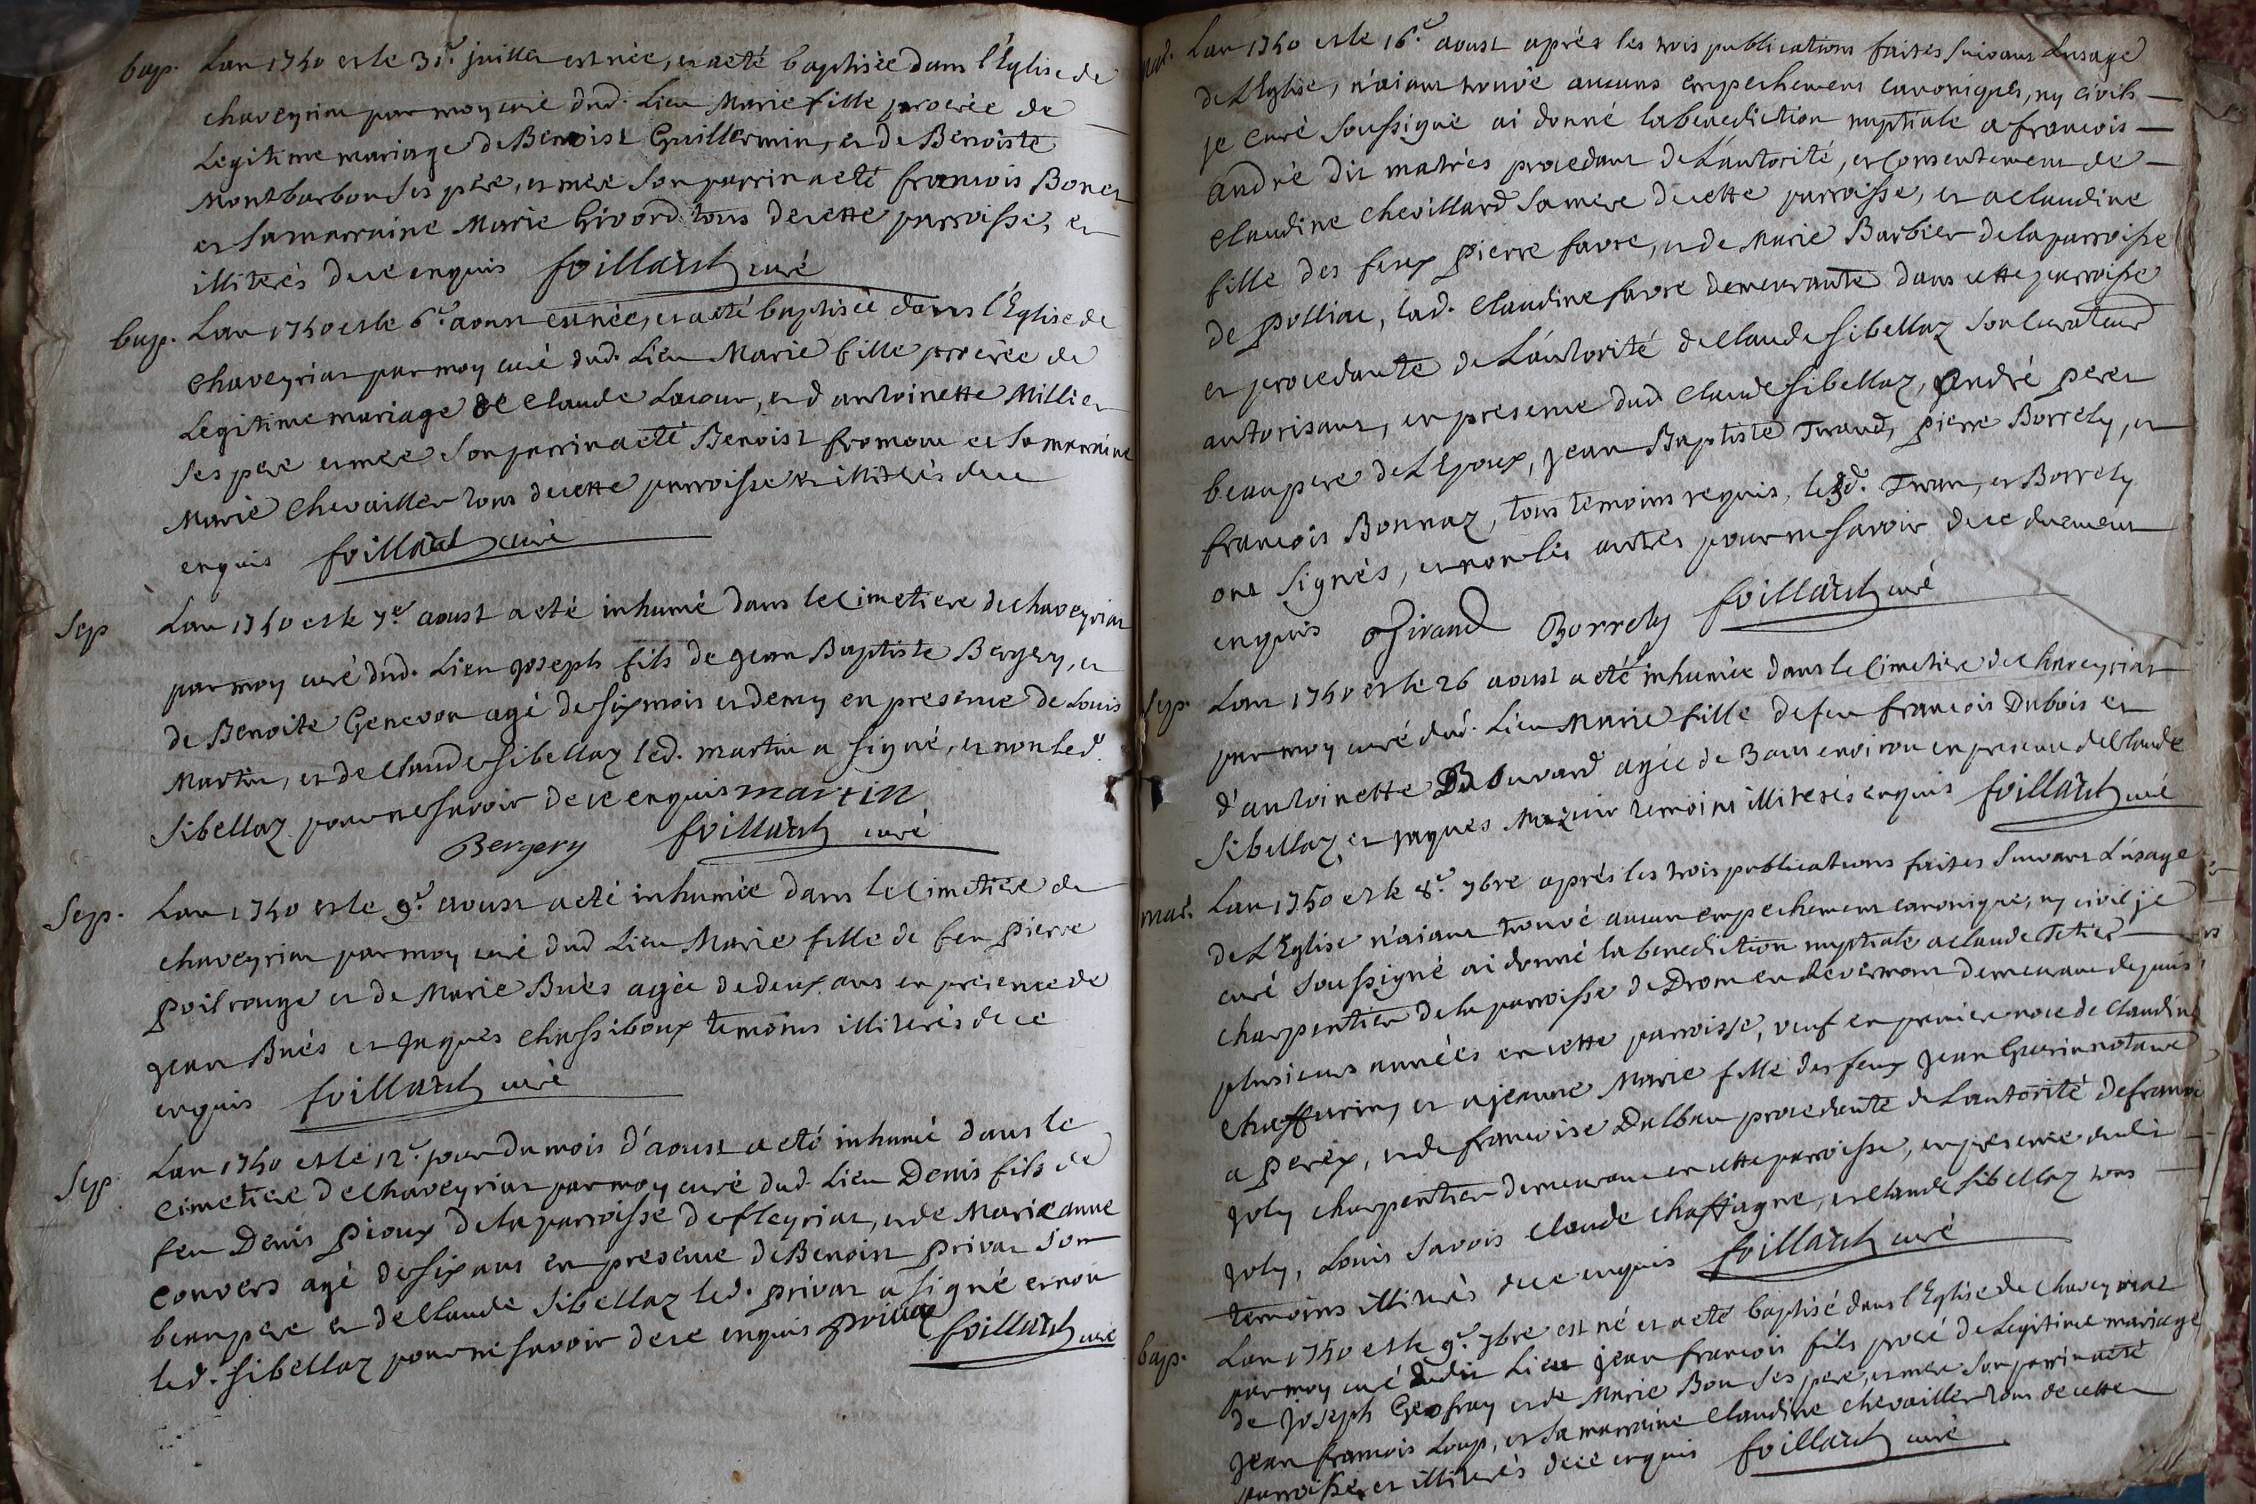 bap. Lan 1740 et le 31e juillet est née, et a eté baptisée dans l'Eglise de
chaveyriat par moy curé dud. Lieu Marie fille procrée de
Legitime mariage de Benoist Guillermin, et de Benoiste
Montbarbon ses pere, et mere son parrin a eté francois Bonet
et sa marraine Marie Givord tous de cette parroisse, et
illiterés de ce enquis foillard curé
bap. Lan 1740 et le 6e aoust est née, et a eté baptisée dans l'Eglise de
Chaveyriat par moy curé dud. Lieu Marie fille procrée de
Legitime mariage de Claude Lacour, et d'antoinette Millier
ses pere et mere son parrin a eté Benoist fromont et sa marraine
Marie Chevailler tous de cette parroisse et illiterés de ce
enquis foillard curé
Sep Lan 1740 et le 7e aoust a eté inhumé dans le Cimetiere de chaveyriat
par moy curé dud. Lieu Joseph fils de Jean Baptiste Bergery, et
de Benoite Genevon agé de six mois et demy en presence de Louis
Martin, et de Claude Sibellaz led. martin a signé, et non led.
Sibellaz pour ne savoir de ce enquis martin
Bergery foillard curé
Sep. Lan 1740 et le 9e aoust a eté inhumée dans le Cimetiere de
chaveyriat par moy curé dud Lieu Marie fille de feu pierre
poilrouge et de Marie Buès agée de deux ans en presence de
Jean Buès et Jaques Chassiboux temoins illiterés de ce
enquis foillard curé
Sep. Lan 1740 et le 12e jour du mois d'aoust a eté inhumé dans le
Cimetiere de Chaveyriat par moy curé dud. Lieu Denis fils de
feu Denis pioux de la parroisse de fleyriat, et de Marie anne
Convers agé de six ans en presence de Benoist privat son
beaupere et de Claude Sibellaz led. privat a signé et non
led. Sibellaz pour ne savoir de ce enquis privat foillard curé
mar. Lan 1740 et le 16e aoust aprés les trois publications faites suivant L'usage
de L'Eglise, n'aiant trouvé aucuns empechemens canoniques, ny civils
je curé soussigné ai donné la benediction nuptiale a francois
andré dit matrès procedant de L'autorité, et Consentement de
Claudine Chevillard sa mere de cette parroisse, et a Claudine
fille des feux pierre favre, et de Marie Barbier de la parroisse
de polliat, lad. Claudine favre demeurante dans cette parroisse
et procedante de L'autorité de Claude Sibellaz son Curateur
autorisant, en presence dud. Claude Sibellaz, andré peret
beaupere de L'Epoux, Jean Baptiste Giraud, pierre Borrely, et
francois Bonnaz, tous temoins requis, lesd. Giraud, et Borrely
ont signés, et non les autres pour ne savoir de ce duement
enquis Giraud Borrely foillard curé
Sep. Lan 1740 et le 26 aoust a eté inhumée dans le Cimetiere de Chaveyriat
par moy curé dud. Lieu Marie fille de feu francois Dubois et
d'antoinette Bouvard agée de 3 ans environ en presence de Claude
Sibellaz, et Jaques Mazuir temoins illiterés enquis foillard curé
mar. Lan 1740 et le 8e 7bre aprés les trois publications faites suivant L'usage
de L'Eglise n'aiant trouvé aucun empechement canonique, ny civil je
curé soussigné ai donné la benediction nuptiale a Claude Tetier
charpentier de la parroisse de Drom en Revermont demeurant depuis
plusieurs années en cette parroisse, veuf en premiere noce de Claudine
Chaffurin, et a jeanne Marie fille des feux Jean Guerin notaire
a perex, et de francoise Dalban procedante de L'autorité de francois
Joly charpentier demeurant en cette parroisse, en presence dudit
Joly, Louis Savois Claude Chaffagne, et Claude Sibellaz tous
temoins illiterés de ce enquis foillard curé
bap. Lan 1740 et le 9e 7bre est né et a eté baptisé dans l'Eglise de Chaveyriat
par moy curé dudit Lieu jean francois fils procré de Legitime mariage
de Joseph Geofray et de Marie Bon ses pere, et mere son parrin a eté
Jean francois Loup, et sa marraine Claudine Chevailler tous de cette
parroisse et illiterés de ce enquis foillard curé